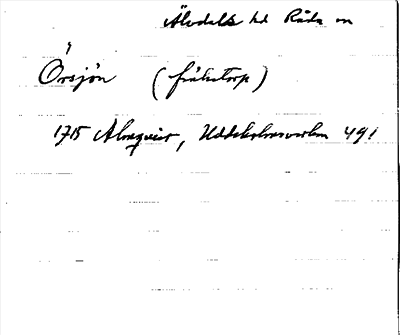 Älvdals hd Råda sn
Örsjön (fräkstorp)
1715 Almqvist, Uddeholmsverken 491